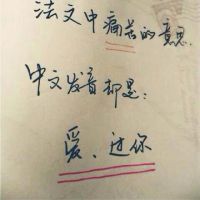 法文中痛苦的意思.
中文发音却是：
爱、过你